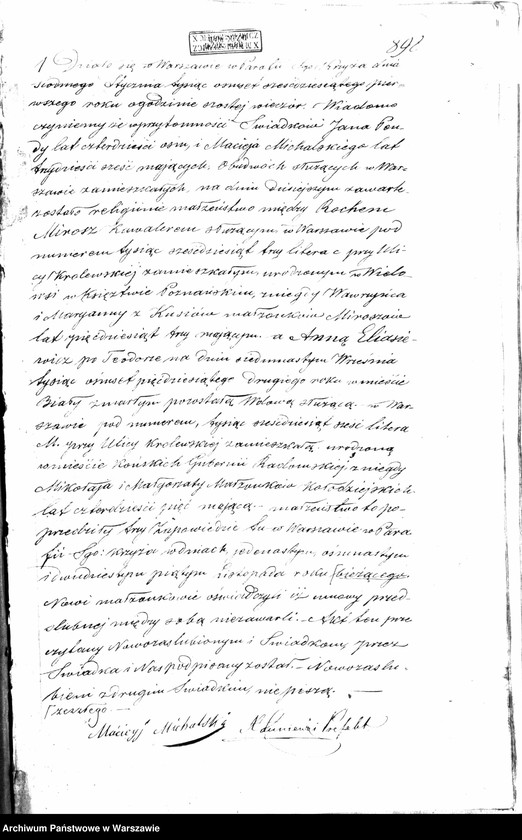 898
1 Działo się w Warszawie w Parafii Sgo. Krzyża dnia
siodmego Stycznia tysiąc osmset sześćdziesiątego pier-
wszego roku o godzinie szostej wieczór. Wiadomo
czyniemy że w przytomności Swiadków Jana
lat czterdzieści osm, i Macieja Michalskiego lat
trzydzieści sześć mających, Obudwóch służących w War-
szawie zamieszkałych, na dniu dzisiejszym zawarte
zostało religijne małżeństwo między Rochem
Mirosz Kawalerem służącym w Warszawie pod
numerem tysiąc sześćdziesiąt trzy litera c przy Uli-
cy Królewskiej zamieszkałym, urodzonym w
wsi w Księztwie Poznańskim, z niegdy Wawrzyńca
i Maryanny z Kusiów małżonków Miroszów
lat pięćdziesiąt trzy mającym – a Anną Eliasie-
wicz po Teodorze na dniu siedmnastym Września
tysiąc osmset pięćdziesiątego drugiego roku w mieście
Biały zmarłym pozostałą Wdową służącą – w War-
szawie pod numerem, tysiąc sześćdziesiąt sześć litera
M. przy Ulicy Królewskiej zamieszkałą, urodzoną
w mieście Końskich Gubernii Radomskiej z niegdy
Mikołaja i Małgorzaty Małżonków Kołodziejskich
lat czterdzieści pięć mającą – małżeństwo to po-
przedziły trzy Zapowiedzie tu w Warszawie w Para
fii Sgo: Krzyża w dniach, jedenastym, osmnastym
i dwudziestym piątym Listopada roku bieżącego
Nowi małżonkowie oświadczyli iż umowy przed-
ślubnej między sobą niezawarli. – Akt ten prze
czytany Nowozaślubionym i Swiadkom, przez
Swiadka i Nas podpisany został. – Nowozaślu-
bieni z drugim Swiadkiem nie piszą. –
zeszłego –
Maciejj Michalski Prefekt
Archiwum Państwowe w Warszawie